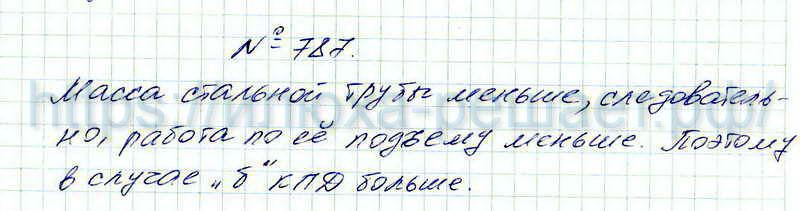 № 787.
Масса стальной трубы меньше, следователь-
но, работа по её подъему меньше. Поэтому
в случае „б“ КПД больше.